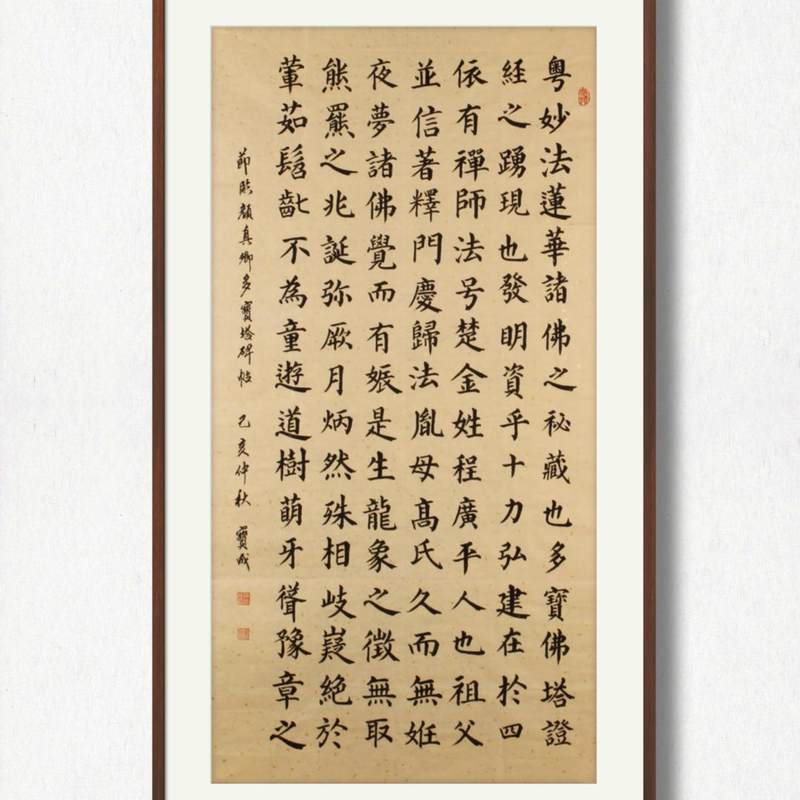 粵妙法蓮華諸佛之秘藏也多寶佛塔證
経之踴現也發明資乎十力弘建在於四
依有禪師法号楚金姓程廣平人也祖父
並信著釋門慶歸法胤母髙氏久而無姙
夜夢諸佛覺而有娠是生龍象之徵無取
熊羆之兆誕弥厥月炳然殊相岐嶷絕於
葷茹髫齔不為童遊道樹萌牙聳豫章之
節臨顏真卿多寶塔碑帖 己亥仲秋 寶成